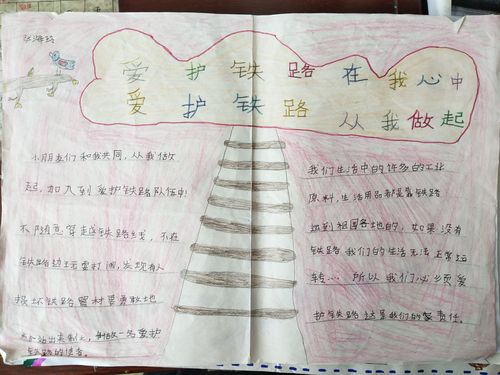 张海玲
爱护铁路在我心中
爱护铁路 从我做起
小朋友们和我共同,从我做
起,加入到爱护铁路队伍中!
不随意穿越铁路线,不在
铁路边玩耍打闹,发现有人
损坏铁路器材要勇敢地
站出来制止,争做一名爱护
铁路的使者。
我们生活中的许多的工业
原料,生活用品都是靠铁路
运到祖国各地的,如果没有
铁路我们的生活无法正常运
转... 所以我们必须爱
护铁路这是我们的责任。